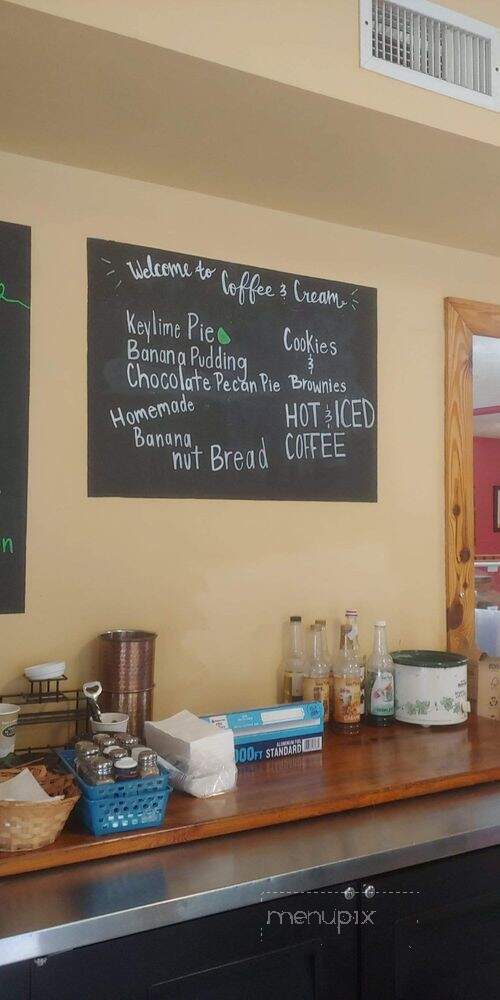 Welcome to Coffee & Cream
Keylime Pie
Banana Pudding
Chocolate Pecan Pie
Homemade
Banana
nut Bread
Cookies
&
Brownies
HOT & ICED
COFFEE
n
000FT STANDARD
ALUMINUM FOIL
menupix